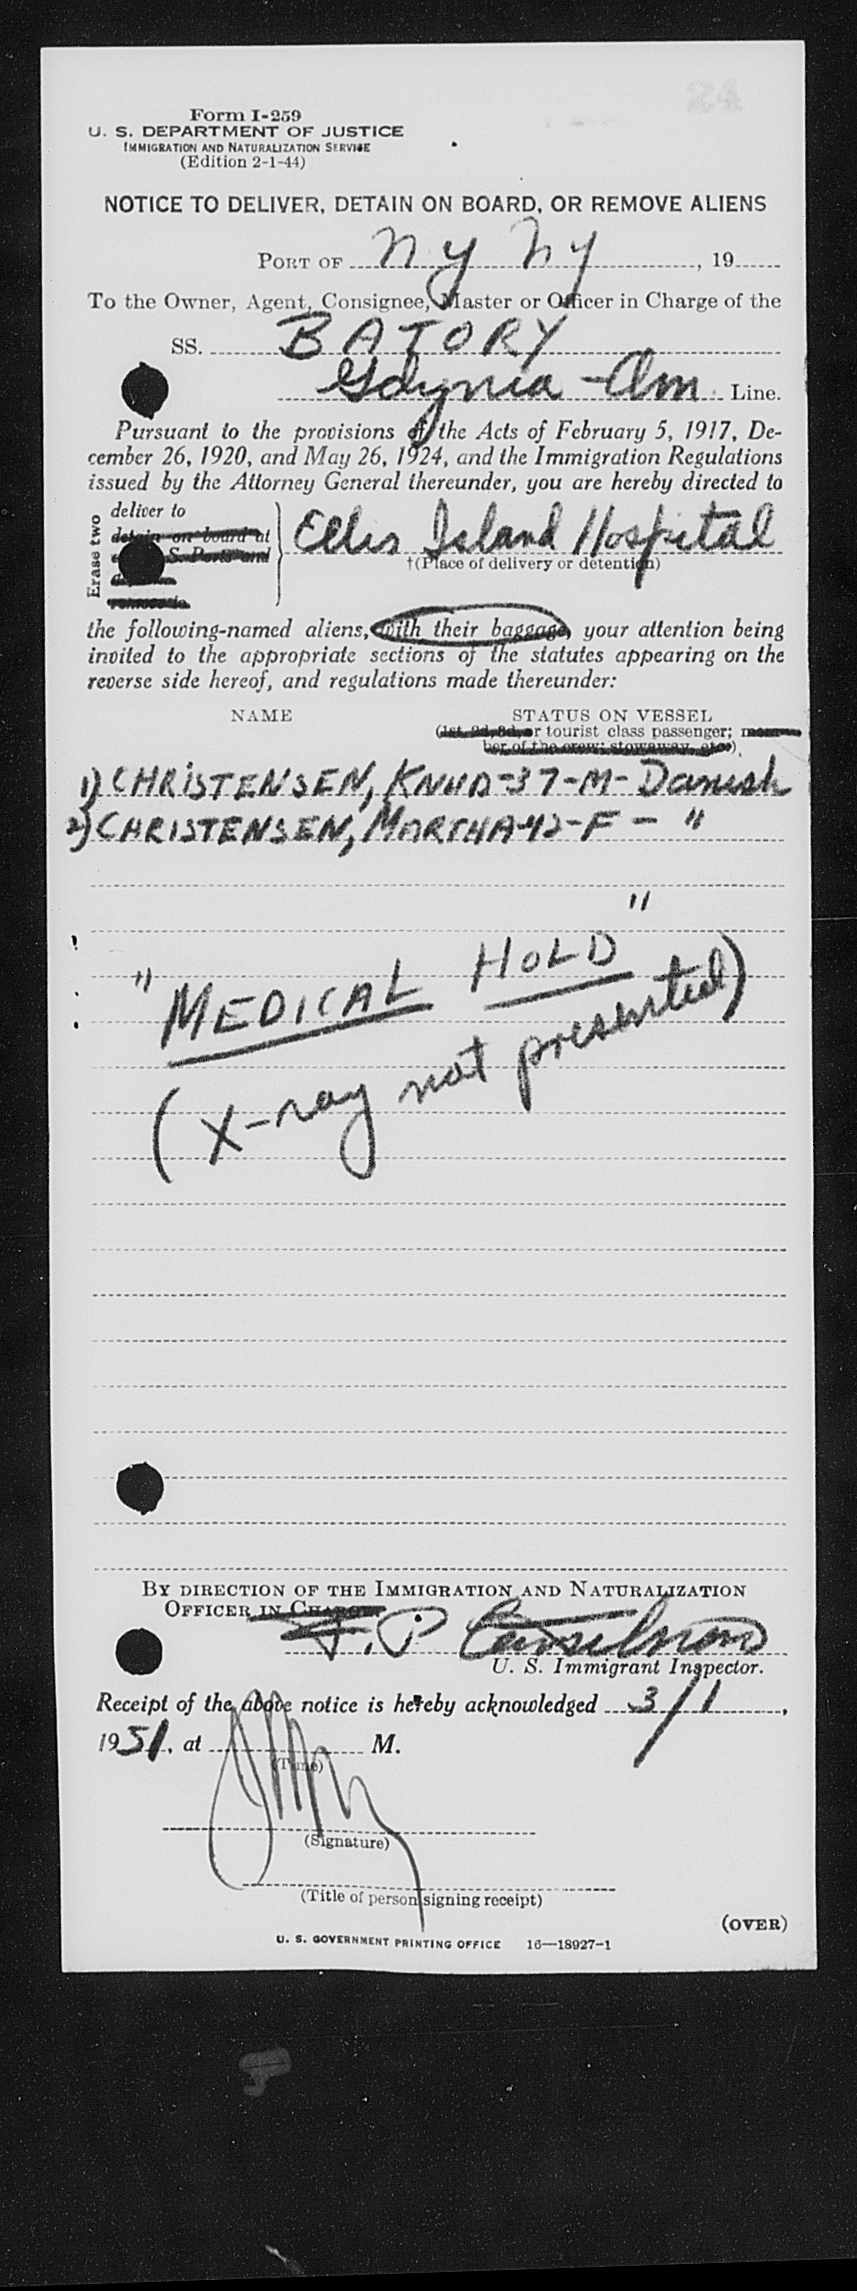 24
Form I-259
U. S. DEPARTMENT OF JUSTICE
IMMIGRATION AND NATURALIZATION SERVICE
(Edition 2-1-44)
NOTICE TO DELIVER, DETAIN ON BOARD, OR REMOVE ALIENS
PORT OF N y N y, 19
To the Owner, Agent, Consignee, Master or Officer in Charge of the
SS. BATORY
Gdynia - Am. Line.
Pursuant to the provisions of the Acts of February 5, 1917, De-
cember 26, 1920, and May 26, 1924, and the Immigration Regulations
issued by the Attorney General thereunder, you are hereby directed to
Erase two
deliver to
detain on board at
S. Ports and
remove to
Ellis Island Hospital
†(Place of delivery or detention)
the following-named aliens, with their baggage, your attention being
invited to the appropriate sections of the statutes appearing on the
reverse side hereof, and regulations made thereunder:
NAME STATUS ON VESSEL
(1st, 2d, 3d, or tourist class passenger; mem-
ber of the crew; stowaway, etc.)
1) CHRISTENSEN, KNUD-37-M-Danish
2) CHRISTENSEN, MARTHA-42-F - "
"MEDICAL HOLD"
(X-ray not presented)
BY DIRECTION OF THE IMMIGRATION AND NATURALIZATION
OFFICER IN CHARGE
F. P.
U. S. Immigrant Inspector.
Receipt of the above notice is hereby acknowledged 3/1,
1951, at M.
(Time)
(Signature)
(Title of person signing receipt)
(OVER)
U. S. GOVERNMENT PRINTING OFFICE 16—18927-1